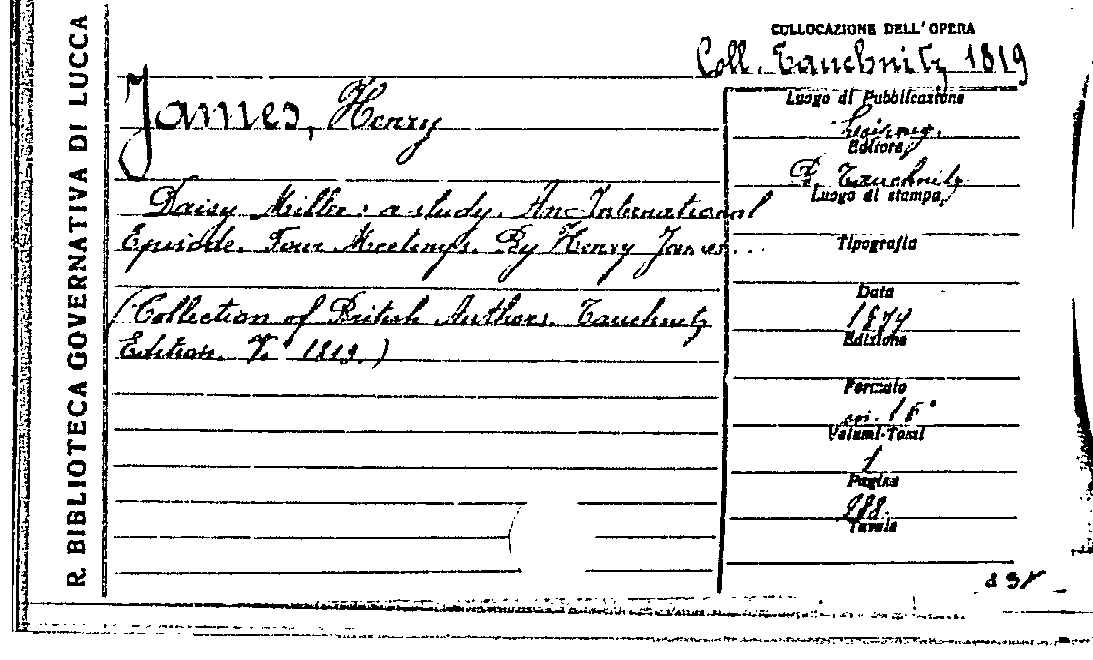 R. BIBLIOTECA GOVERNATIVA DI LUCCA
COLLOCAZIONE DELL'OPERA
Coll. Tauchnitz 1819
James, Henry
Daisy Miller: a study. An International
Episode. Four Meetings. By Henry James...
(Collection of British Authors. Tauchnitz
Edition. V. 1819.)
Luogo di Pubblicazione
Editore
B. Tauchnitz
Luogo di stampa
Tipografia
Data
1879
Edizione
Formato
in. 16°
Volumi-Tomi
1
Pagine
288.
Tavole